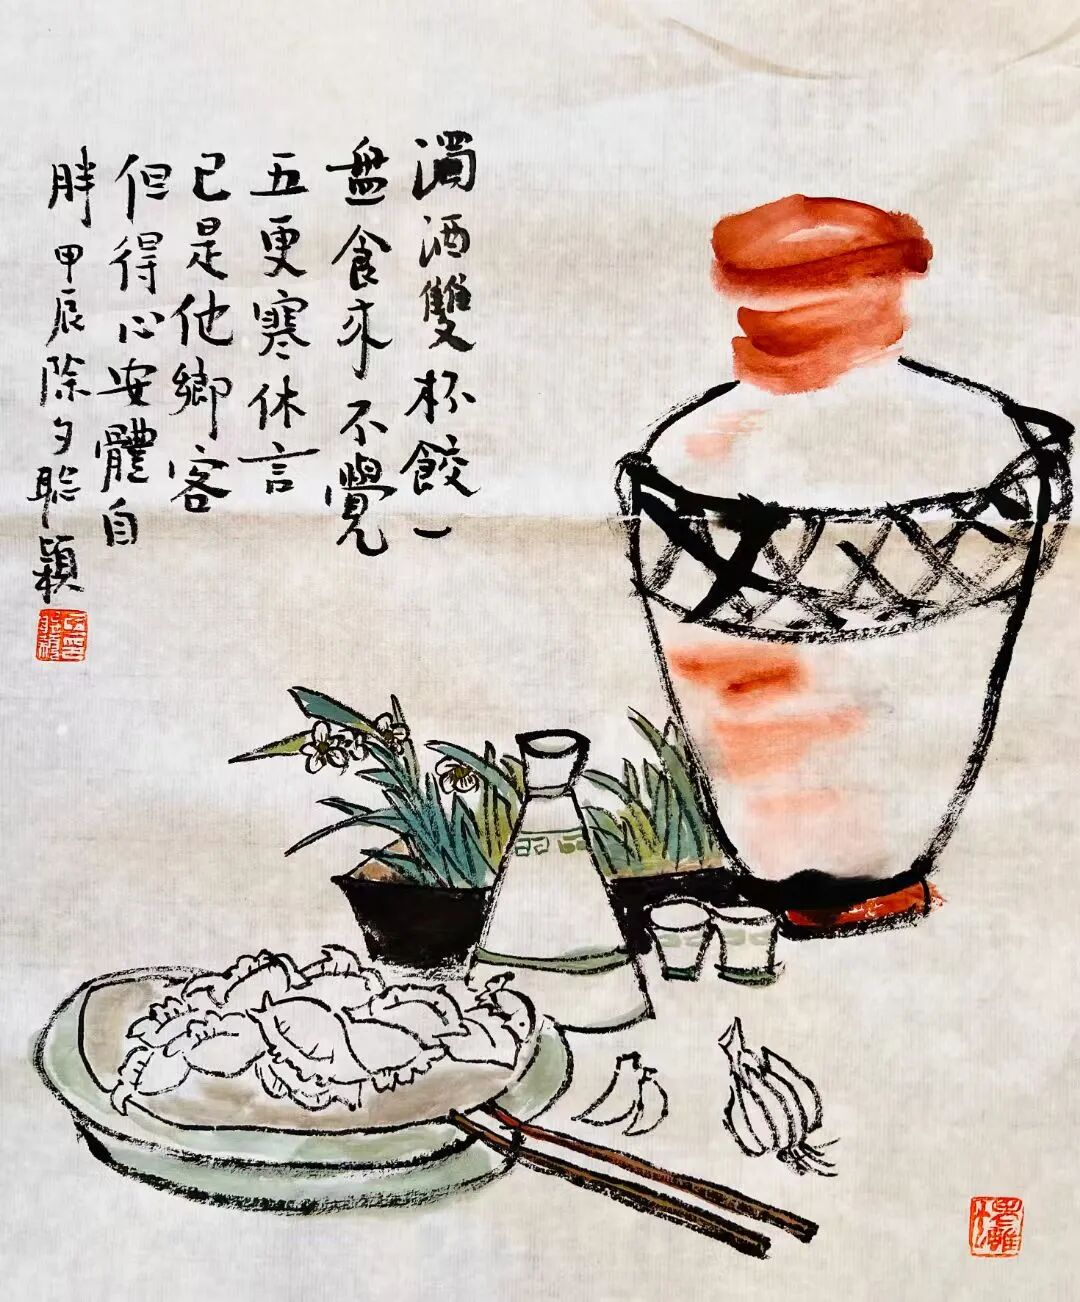 濁酒雙杯餃一
盤食來不覺
五更寒休言
已是他鄉客
但得心安體自
胖甲辰除夕聡穎